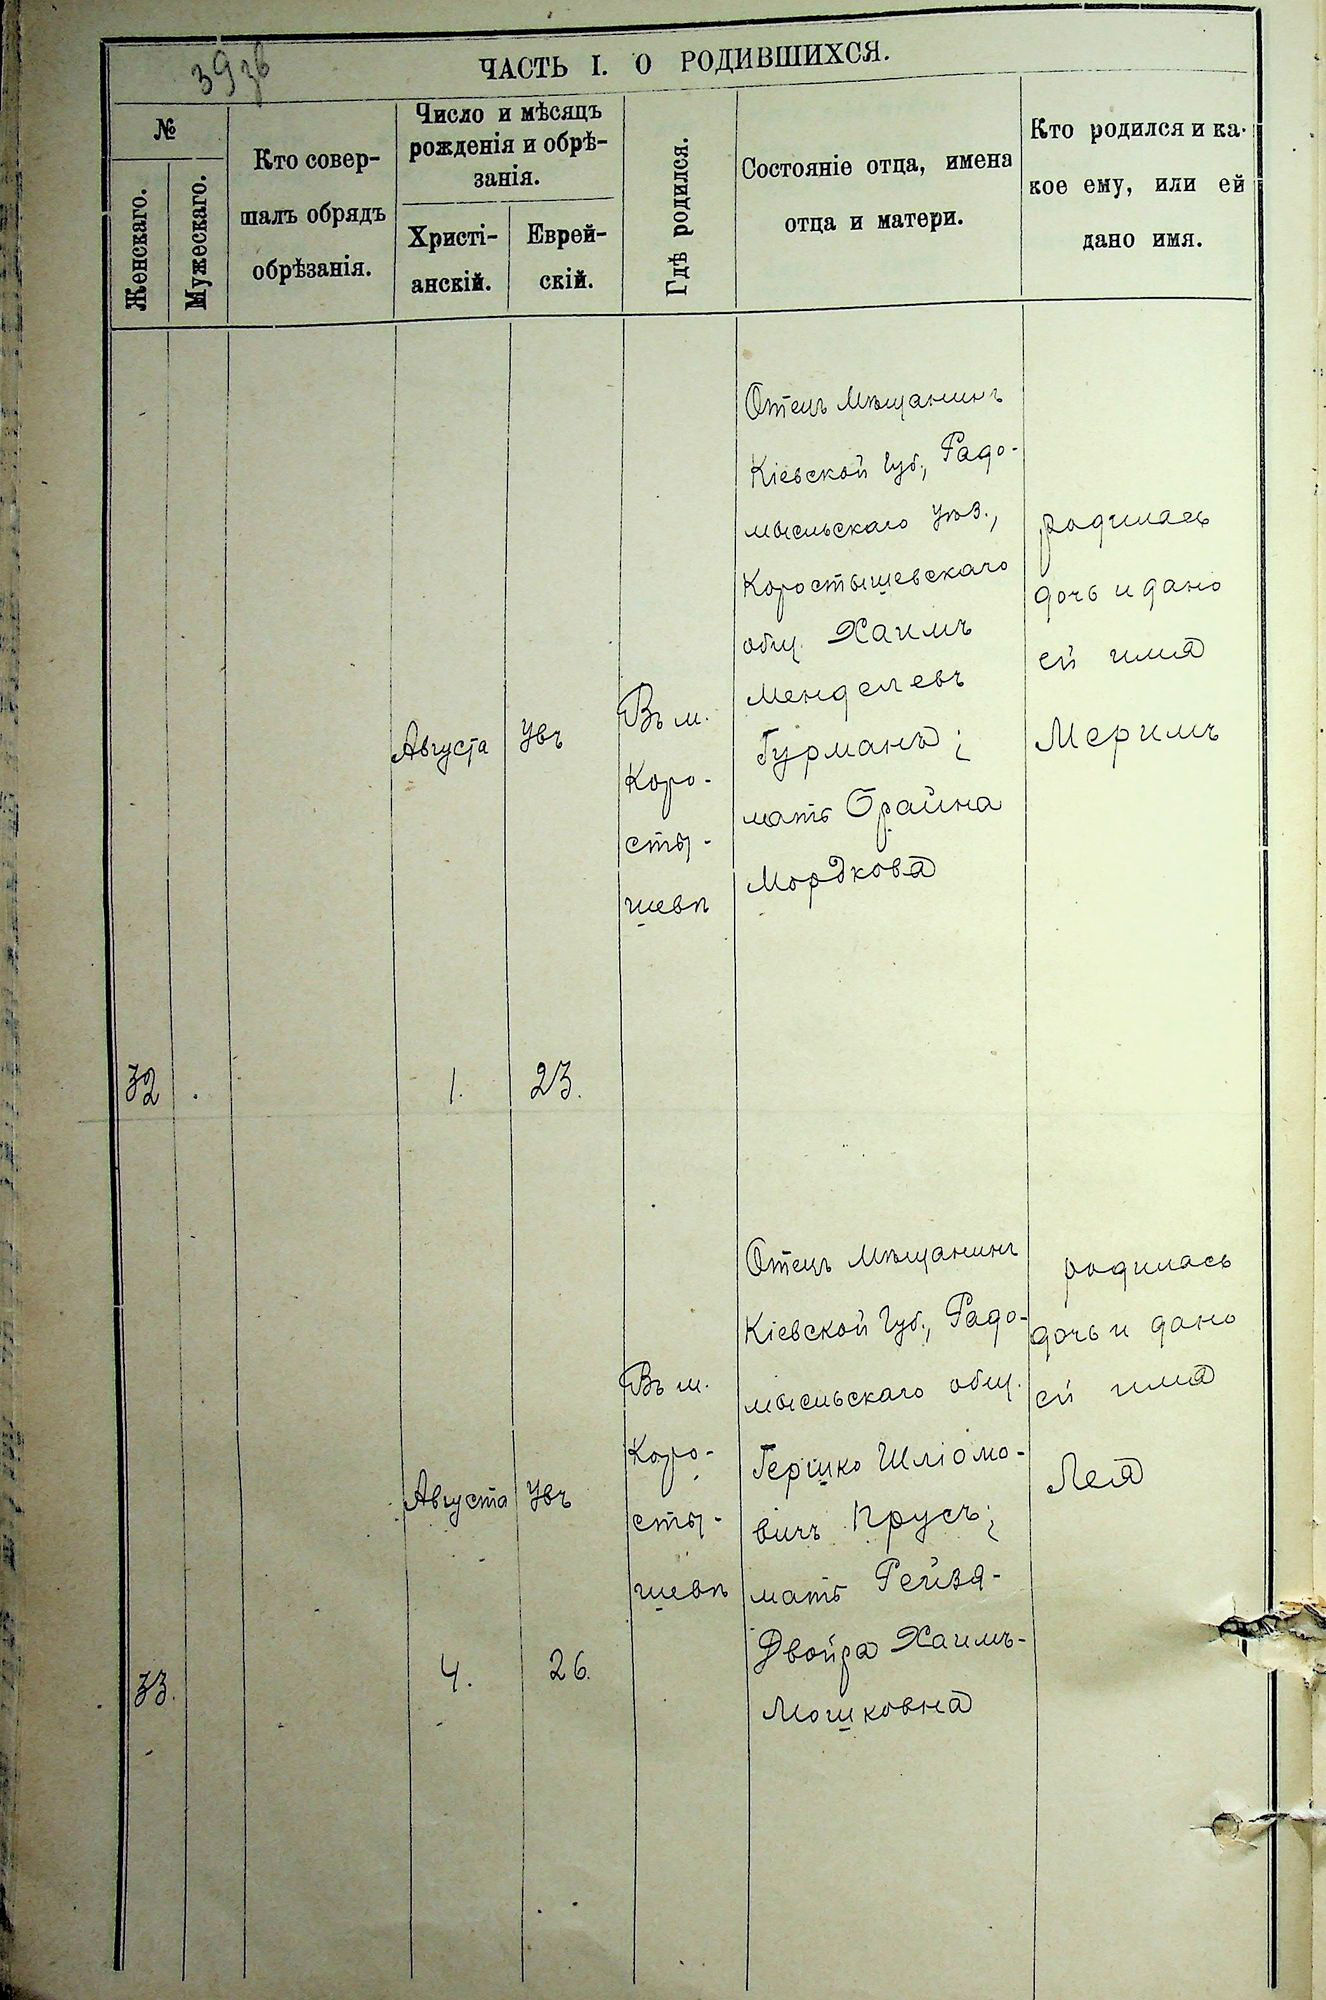 39 зв
ЧАСТЬ I. О РОДИВШИХСЯ.
№
Женскаго.
Мужескаго.
Кто совер-
шалъ обрядъ
обрѣзанія.
Число и мѣсяцъ
рожденія и обрѣ-
занія.
Христі-
анскій.
Еврей-
скій.
Гдѣ родился.
Состояніе отца, имена
отца и матери.
Кто родился и ка-
кое ему, или ей
дано имя.
32
Августа
1.
Увъ
23.
Въ м.
Коро-
сты-
шевѣ
Отецъ Мѣщанинъ
Кіевской Губ., Радо-
мысльскаго уѣз.,
Коростышевскаго
общ. Хаимъ
Менделевъ
Гурманъ;
мать Брайна
Мордкова
родилась
дочь и дано
ей имя
Меримъ
33.
Августа
4.
Увъ
26.
Въ м.
Коро-
сты-
шевѣ
Отецъ Мѣщанинъ
Кіевской Губ., Радо-
мысльскаго общ.
Гершко Шліомо-
вичъ Прусъ;
мать Рейзя-
Двойра Хаимъ-
Мошковна
родилась
дочь и дано
ей имя
Лея